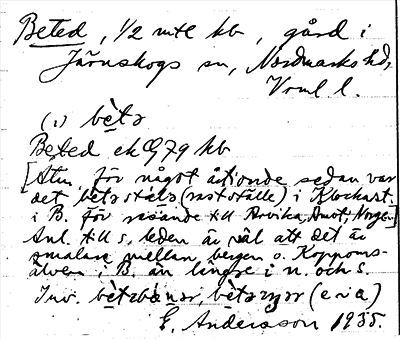 Beted, 1/2 mtl kb, gård i
Järnskogs sn, Nordmarks hd,
Vrml. l.
(1) bètə
Beted ek G 79 kb
[Atm. för något årtionde sedan var
det bètəställə (rastställe) i Klockarst.
i B. för resande till Arvika, Åmot, Norge.]
Anl. till s. leden är väl att det är
smalare mellan bergen o. Koppoms-
älven i B. än längre i n. och s.
Inv. bètəbànər, bètər
E. Andersson 1935.